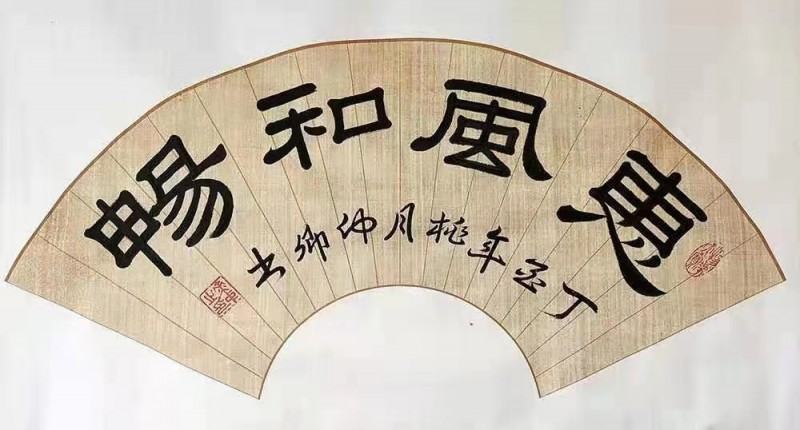 惠風和暢
丁酉年桃月仲卿书